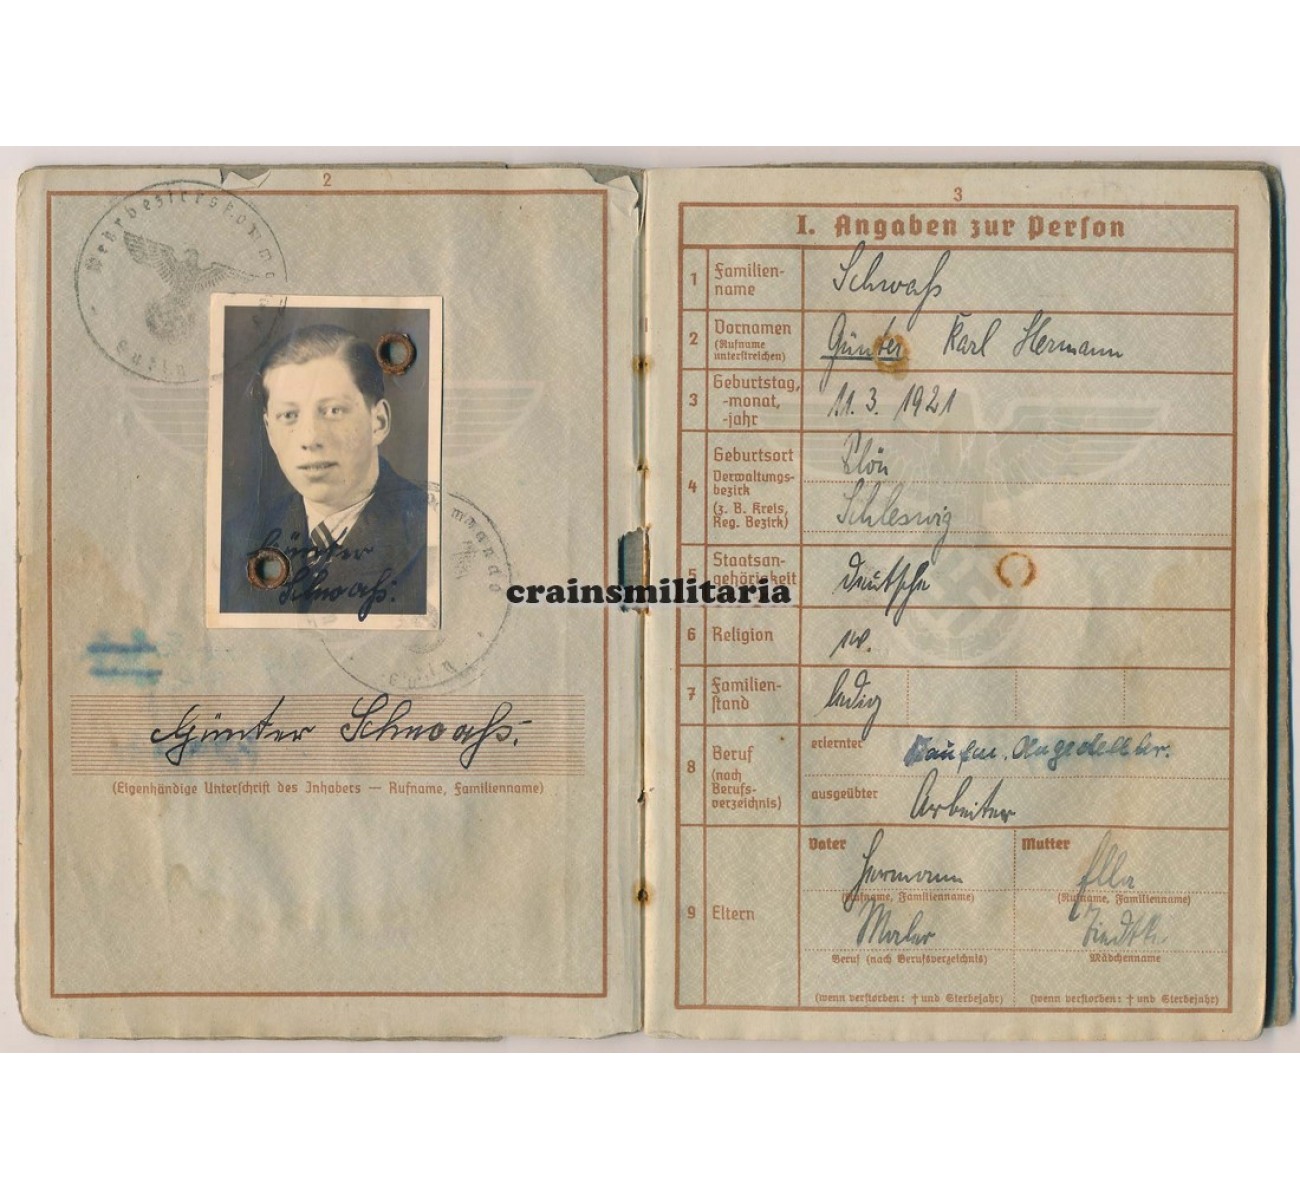 2
Wehrbezirkskommando
Eutin
Günter
Schwaß.
Günter Schwaß.
(Eigenhändige Unterschrift des Inhabers — Rufname, Familienname)
crainsmilitaria
3
I. Angaben zur Person
1 Familien-
name
Schwaß
2 Vornamen
(Rufname
unterstreichen)
Günter Karl Hermann
3 Geburtstag,
-monat,
-jahr
11. 3. 1921
4 Geburtsort
Verwaltungs-
bezirk
(z. B. Kreis,
Reg. Bezirk)
Plön
Schleswig
5 Staatsan-
gehörigkeit
deutsche
6 Religion
7 Familien-
stand
ledig
8 Beruf
(nach
Berufs-
verzeichnis)
erlernter
Kaufm. Angestellter.
ausgeübter
Arbeiter
9 Eltern
Vater
Hermann
(Rufname, Familienname)
Maler
Beruf (nach Berufsverzeichnis)
(wenn verstorben: † und Sterbejahr)
Mutter
Ella
(Rufname, Familienname)
Mädchenname
(wenn verstorben: † und Sterbejahr)